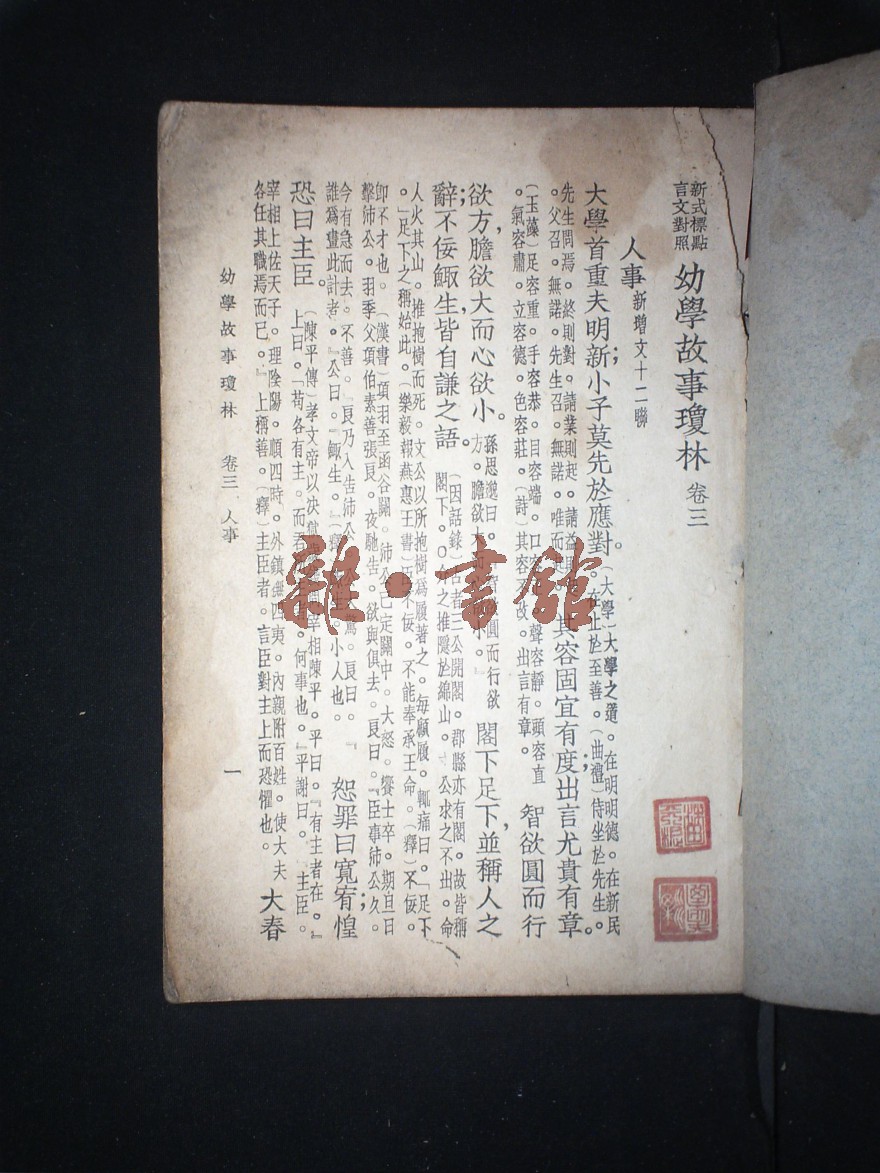 新式標點
言文對照
幼學故事瓊林 卷三
人事 新增文十二聯
大學首重夫明新;小子莫先於應對。
(大學)大學之道。在明明德。在新民
。在止於至善。(曲禮)侍坐於先生。
先生問焉。終則對。請業則起。請益則
。父召。無諾。先生召。無諾。唯而
其容固宜有度;出言尤貴有章。
(玉藻)足容重。手容恭。目容端。口
聲容靜。頭容直
。氣容肅。立容德。色容莊。(詩)其容
改。出言有章。
智欲圓而行
欲方,膽欲大而心欲小。
孫思邈曰。
圓而行欲
方。膽欲大
小。』
閣下足下,並稱人之
辭;不佞鯫生,皆自謙之語。
(因話錄)古者三公開閣。郡縣亦有閣。故皆稱
閣下。○介之推隱於綿山。文公求之不出。命
人火其山。推抱樹而死。文公以所抱樹爲履著之。每顧履。輒痛曰。「足下
。」足下之稱始此。(樂毅報燕惠王書)臣不佞。不能奉承王命。(釋)不佞。
卽不才也。(漢書)項羽至函谷關。沛公已定關中。大怒。饗士卒。期旦日
擊沛公。羽季父項伯素善張良。夜馳告。欲與俱去。良曰。『臣事沛公久。
今有急而去。不善。』良乃入告沛公
驚。良曰。『
誰爲畫此計者。』公曰。『鯫生。』(釋)
小人也。
恕罪曰寬宥;惶
恐曰主臣。
(陳平傳)孝文帝以決獄
問宰相陳平。平曰。『有主者在。』
上曰。『苟各有主。而君
者。何事也。』平謝曰。『主臣。
宰相上佐天子。理陰陽。順四時。外鎮撫四夷。內親附百姓。使大夫
各任其職焉而已。』上稱善。(釋)主臣者。言臣對主上而恐懼也。
大春
幼學故事瓊林 卷三 人事
一
雜·書館